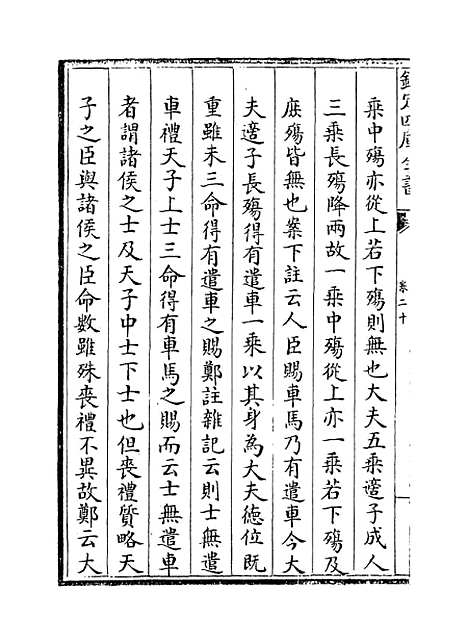 欽定四庫全書
卷二十
乘中殤亦從上若下殤則無也大夫五乘適子成人
三乘長殤降兩故一乘中殤從上亦一乘若下殤及
庶殤皆無也案下註云人臣賜車馬乃有遣車今大
夫適子長殤得有遣車一乘以其身為大夫德位既
重雖未三命得有遣車之賜鄭註雜記云則士無遣
車禮天子上士三命得有車馬之賜而云士無遣車
者謂諸侯之士及天子中士下士也但喪禮質略天
子之臣與諸侯之臣命數雖殊喪禮不異故鄭云大